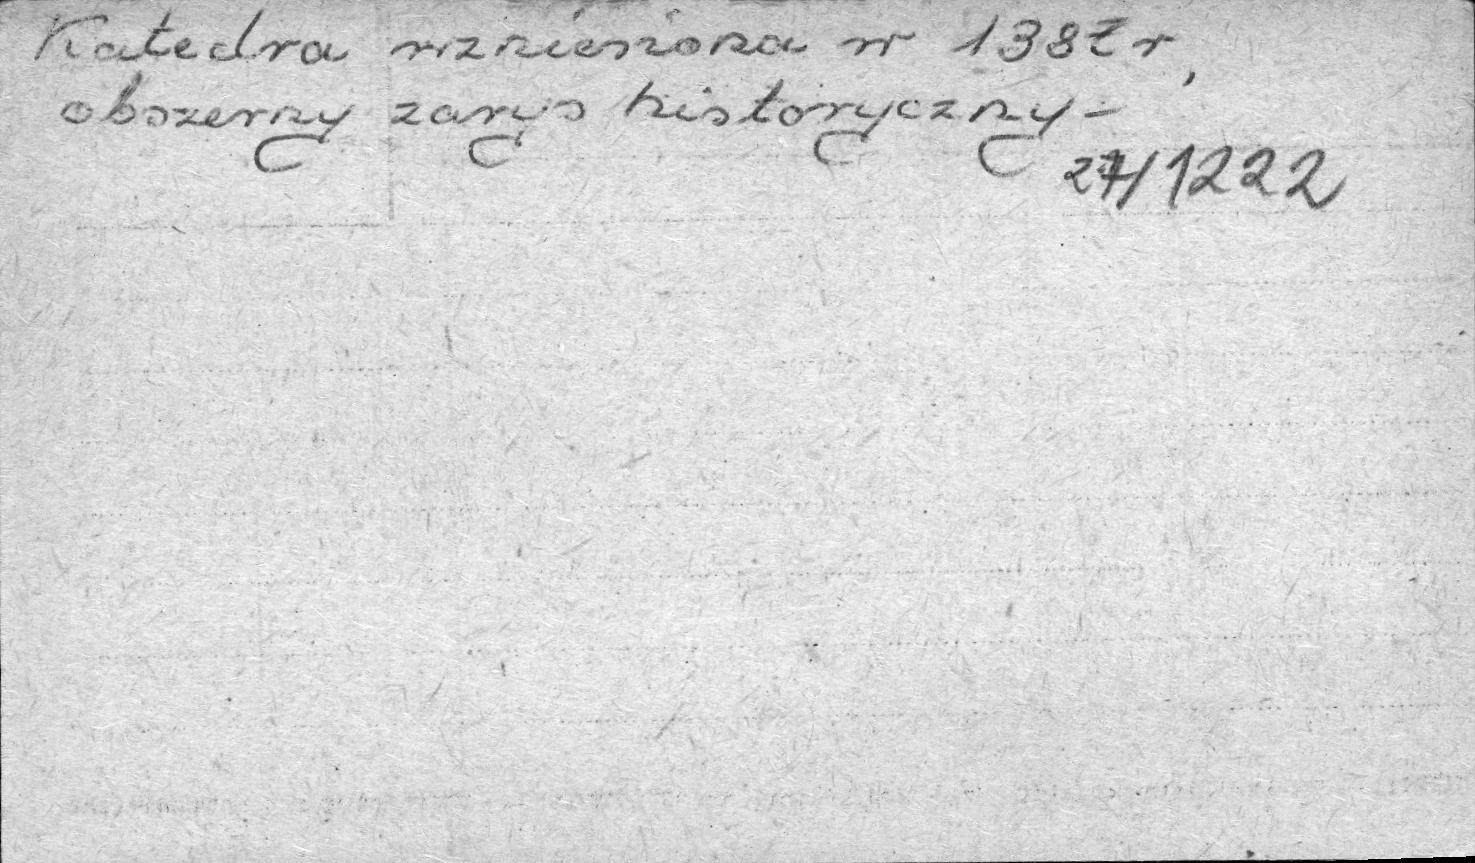 Katedra wzniesiona w 1387 r,
obszerny zarys historyczny -
27/1222